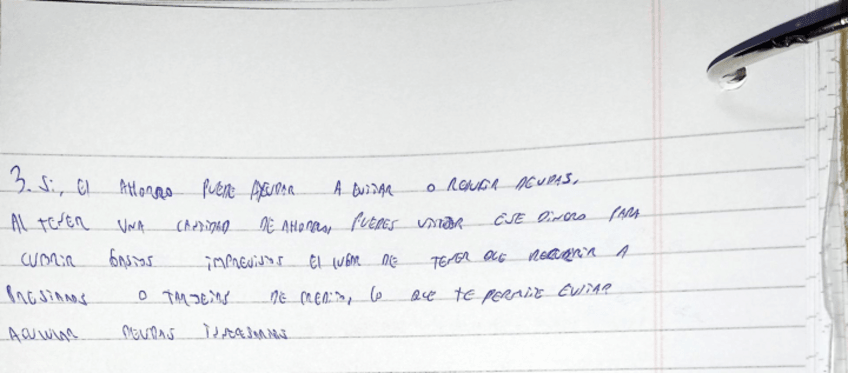 3. Si, El AHORRO PUEDE AYUDAR A EVITAR O REDUCIR DEUDAS.
Al TENER UNA CANTIDAD DE AHORRO, PUEDES UTILIZAR ESE DINERO PARA
CUBRIR GASTOS IMPREVISTOS El LUGAR DE TENER QUE RECURRIR A
PRESTAMOS O TARJETAS DE CREDITO, lo QUE TE PERMITE EVITAR
ACUMULAR DEUDAS